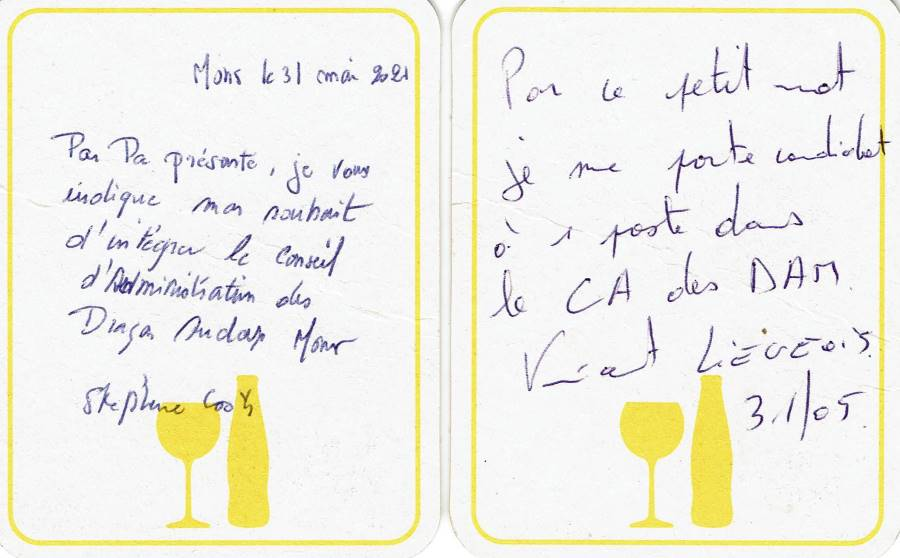 Mons le 31 mai 2021
Par la présente, je vous
indique mon souhait
d'intégrer le Conseil
d'Administration des
Dragon Audax Mons
Stéphane
Par ce petit mot
je me porte candidat
à 1 poste dans
le CA des DAM.
Vincent LIÉGEOIS.
31/05